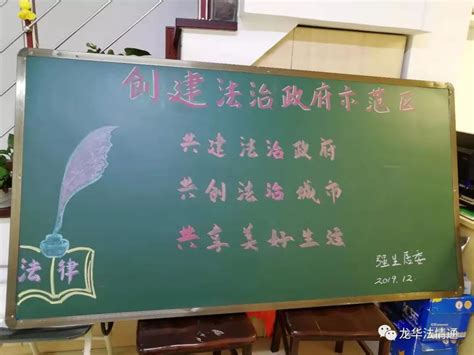 创建法治政府示范区
共建法治政府
共创法治城市
共享美好生活
法律
强生居委
2019.12.
龙华法情通